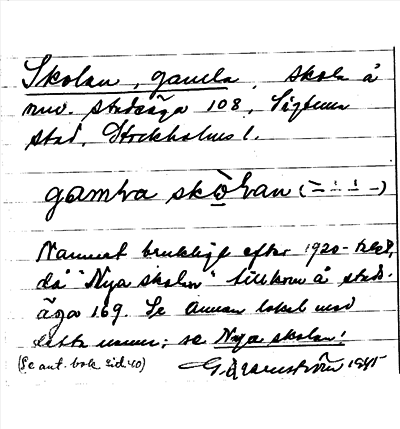 Skolan, gamla, skola å
nuv. stadsäga 108, Sigtuna
stad, Stockholms l.
gamḷa skọ̀ḷan
Namnet brukligt efter 1920-talet,
då "Nya skolan" tillkom å stads-
äga 169. Se annan lokal med
detta namn; se Nya skolan!
(Se ant. bok sid. 40) 1945